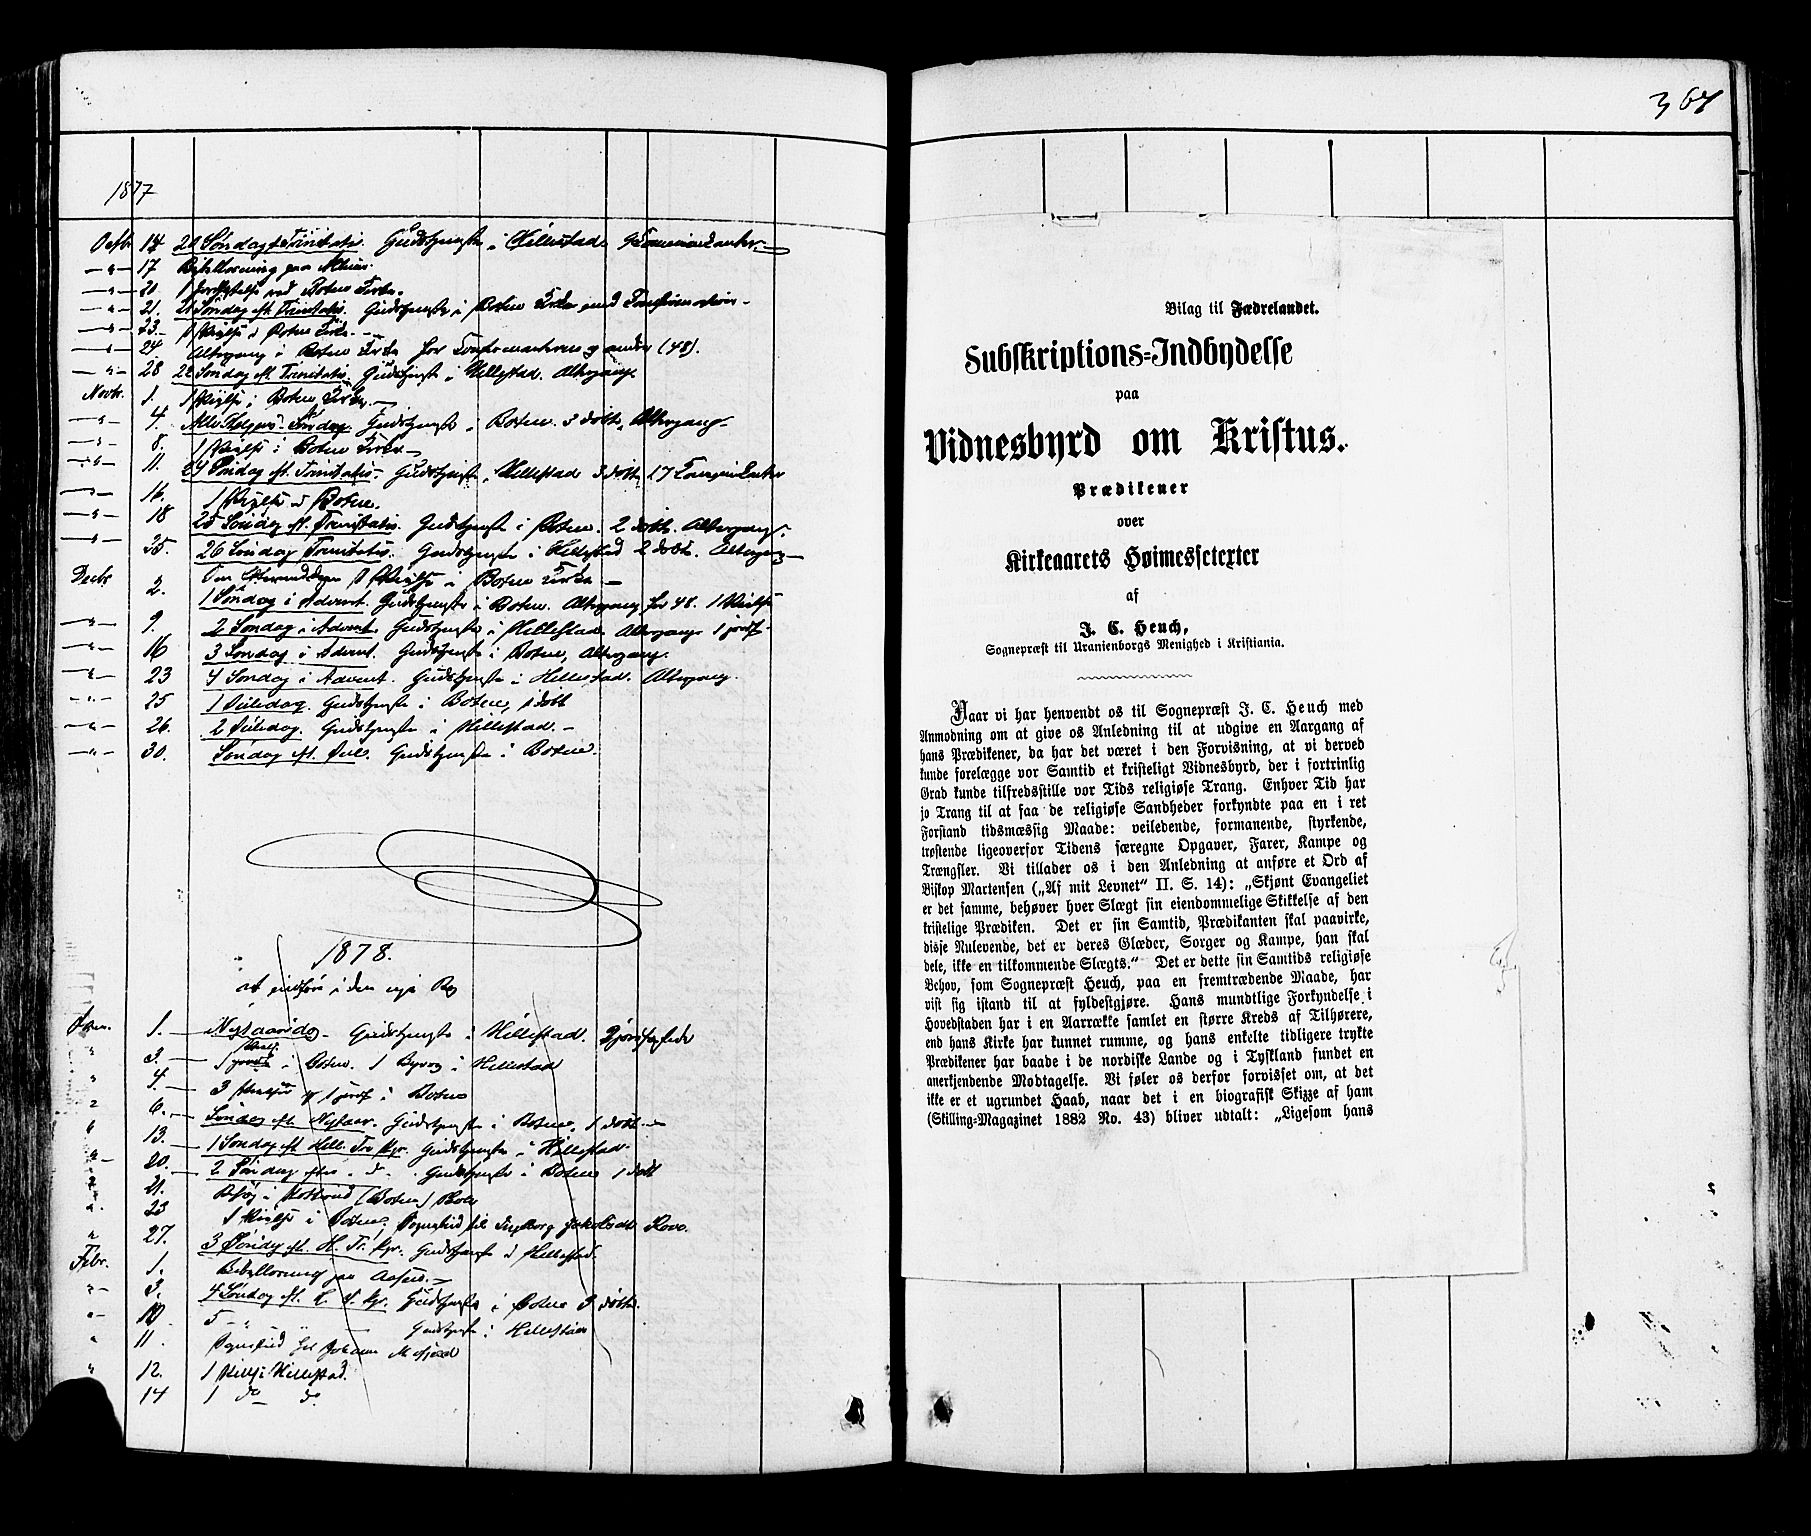 1877
Octb 14 20 Søndag e Trinitatis. Gudstjeneste i Hillestad 9 Communicanter.
— " — 17
— " — 20. ved Botne Kirke.
— " — 21. 21 Søndag eft. Trinitatis. Gudstjeneste i Botne Kirke med Confirmation —
— " — 23. 1 Vielse i Botne Kirke. —
— " — 24. Altergang i Botne Kirke for Confirmanterne og andre (48).
— " — 28 22 Søndag eft. Trinitatis. Gudstjeneste i Hillestad. Altergang.
Novbr. 1. 1 Vielse i Botne Kirke. —
— " — 4. Alle Helgens Søndag. Gudstjeneste i Botne. 3 døbte, Altergang —
— " — 8. 1 Vielse i Botne Kirke —
— " — 11. 24 Søndag eft. Trinitatis. Gudstjeneste i Hillestad 3 døbte 17 Communicanter
— " — 16. 1 Vielse i Botne.
— " — 18 25 Søndag eft. Trinitatis. Gudstjeneste i Botne. 2 døbte. Altergang.
— " — 25. 26 Søndag Trinitatis. Gudstjeneste i Hillestad 2 døbte. Altergang —
Decbr Om Eftermiddagen 1 Vielse i Botne Kirke —
2. 1 Søndag i Advent. Gudstjeneste i Botne. Altergang for 48. 1 Vielse
— " — 9. 2 Søndag i Advent. Gudstjeneste i Hillestad. Altergang 1 jordf.
— " — 16 3 Søndag i Advent. Gudstjeneste i Botne, Altergang.
— " — 23 4 Søndag i Advent. Gudstjeneste i Hillestad. Altergang.
— " — 25 1 Juledag. Gudstjeneste i Botne, 1 døbt
— " — 26. 2 Juledag. Gudstjeneste i Hillestad. —
— " — 30. Søndag eft. Jul. Gudstjeneste i Botne.
1878.
at indføre i den nye Bog
Jan. 1. — Nytaarsdag — Gudstjeneste i Hillestad. 2 jordfæstede
" 3. — 1 i Botne. 1 i Hillestad
" 4. — 3 og 1 jordf i Botne
" 6. — Søndag eft. Nytaar. Gudstjeneste i Botne, 1 døbt —
" 13. — 1 Søndag eft. Hell. Tre Kgr. Gudstjeneste i Hillestad.
" 20. — 2 Søndag efter d. Gudstjeneste i Botne 1 døbt
" 21. Besøg i (Botne)
" 23 1 Vielse i Botne,
" 27. 3 Søndag eft. H. Tr. Kgr. Gudstjeneste i Hillestad.
Febr. 1. paa Aasen. —
" 3. 4 Søndag eft. H. T. Kgr. Gudstjeneste i Botne 3 døbte.
" 10 5 — " — Gudstjeneste i Hillestad
" 11. Johanne
" 12. 1 Vielse i Hillestad.
14 1 do do
367
Bilag til Fædrelandet.
Subskriptions-Indbydelse
paa
Vidnesbyrd om Kristus.
Prædikener
over
Kirkeaarets Høimessetexter
af
J. C. Heuch,
Sognepræst til Uranienborgs Menighed i Kristiania.
Naar vi har henvendt os til Sognepræst J. C. Heuch med
Anmodning om at give os Anledning til at udgive en Aargang af
hans Prædikener, da har det været i den Forvisning, at vi derved
kunde forelægge vor Samtid et kristeligt Vidnesbyrd, der i fortrinlig
Grad kunde tilfredsstille vor Tids religiøse Trang. Enhver Tid har
jo Trang til at faa de religiøse Sandheder forkyndte paa en i ret
Forstand tidsmæssig Maade: veiledende, formanende, styrkende,
trøstende ligeoverfor Tidens særegne Opgaver, Farer, Kampe og
Trængsler. Vi tillader os i den Anledning at anføre et Ord af
Biskop Martensen („Af mit Levnet“ II. S. 14): „Skjønt Evangeliet
er det samme, behøver hver Slægt sin eiendommelige Skikkelse af den
kristelige Prædiken. Det er sin Samtid, Prædikanten skal paavirke,
disse Nulevende, det er deres Glæder, Sorger og Kampe, han skal
dele, ikke en tilkommende Slægts.“ Det er dette sin Samtids religiøse
Behov, som Sognepræst Heuch, paa en fremtrædende Maade, har
vist sig istand til at fyldestgjøre. Hans mundtlige Forkyndelse i
Hovedstaden har i en Aarrække samlet en større Kreds af Tilhørere,
end hans Kirke har kunnet rumme, og hans enkelte tidligere trykte
Prædikener har baade i de nordiske Lande og i Tyskland fundet en
anerkjendende Modtagelse. Vi føler os derfor forvisset om, at det
ikke er et ugrundet Haab, naar det i en biografisk Skizze af ham
(Skilling-Magazinet 1882 No. 43) bliver udtalt: „Ligesom hans